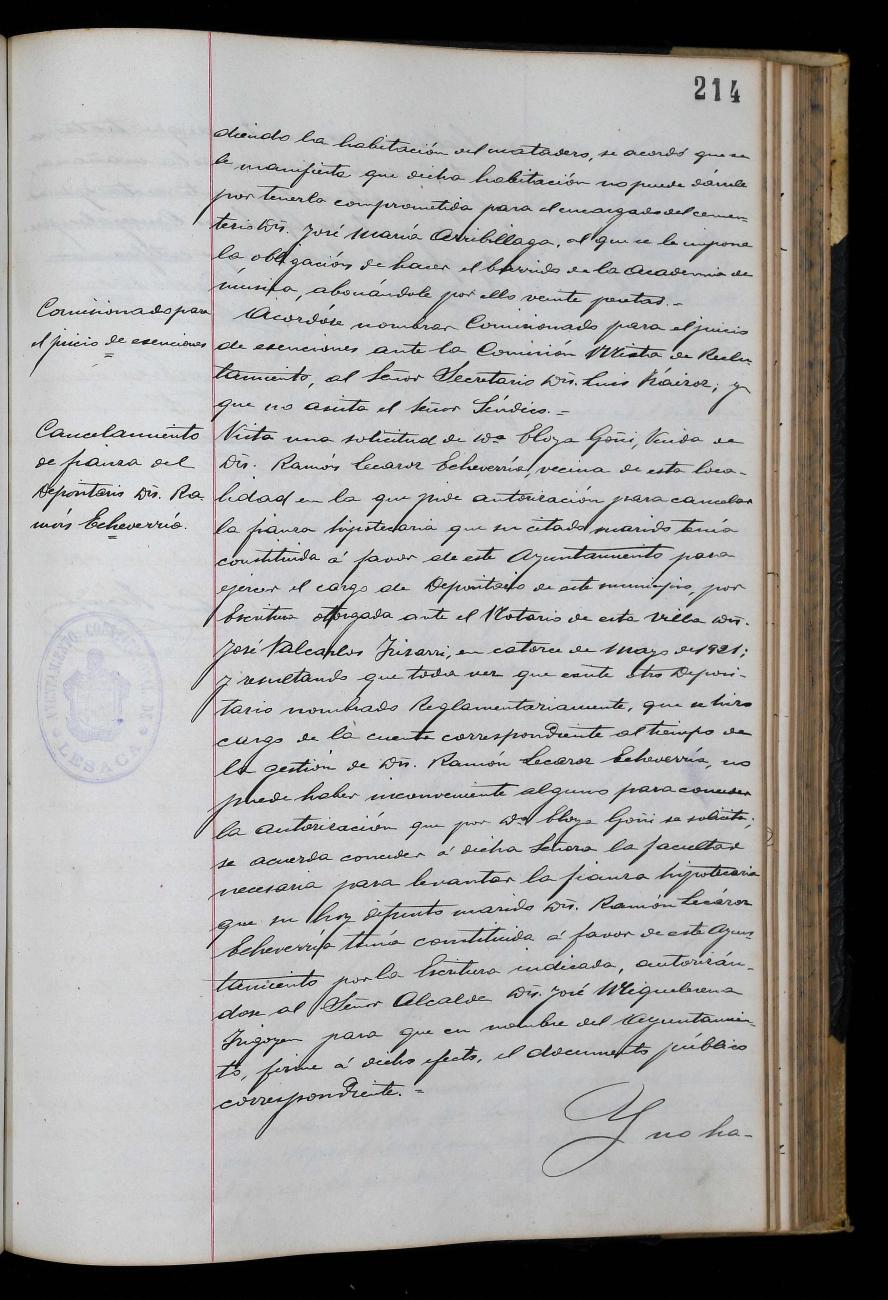 214
diendo la habitación del matadero, se acordó que se
le manifieste que dicha habitación no puede dársele
por tenerla comprometida para el encargado del cemen-
terio Dn. José María Arribillaga, al que se le impone
la obligación de hacer el barrido de la Academia de
música, abonándole por ello veinte pesetas.-
Comisionado para
el juicio de exenciones
=
Acordóse nombrar Comisionado para el juicio
de exenciones ante la Comisión Mixta de Reclu-
tamiento, al Señor Secretario Dn. Luis; y
que no asista el Señor Síndico.=
Cancelamiento
de fianza del
Depositario Dn. Ra-
món Echeverría.
=
Vista una solicitud de Da Eloya Goñi, Viuda de
Dn. Ramón Lecaroz Echeverría, vecina de esta loca-
lidad en la que pide autorización para cancelar
la fianza hipotecaria que su citado marido tenía
constituida á favor de este Ayuntamiento para
ejercer el cargo de Depositario de este municipio, por
Escritura otorgada ante el Notario de esta villa Dn.
José Valcarlos Irisarri, en catorce de Mayo de 1921;
y resultando que toda vez que existe otro Deposi-
tario nombrado Reglamentariamente, que se hizo
cargo de la cuenta correspondiente al tiempo de
la gestión de Dn. Ramón Lecaroz Echeverría, no
puede haber inconveniente alguno para conceder
la autorización que por Da Eloya Goñi se solicita;
se acuerda conceder á dicha Señora la facultad
necesaria para levantar la fianza hipotecaria
que su hoy difunto marido Dn. Ramón Lecároz
Echeverría tenía constituida á favor de este Ayun-
tamiento por la Escritura indicada, autorizán-
dose al Señor Alcalde Dn. José Miguelerena
Irigoyen para que en nombre del Ayuntamien-
to, firme á dicho efecto, el documento público
correspondiente.=
Y no ha-
AYUNTAMIENTO CONSTITUCIONAL DE
LESACA